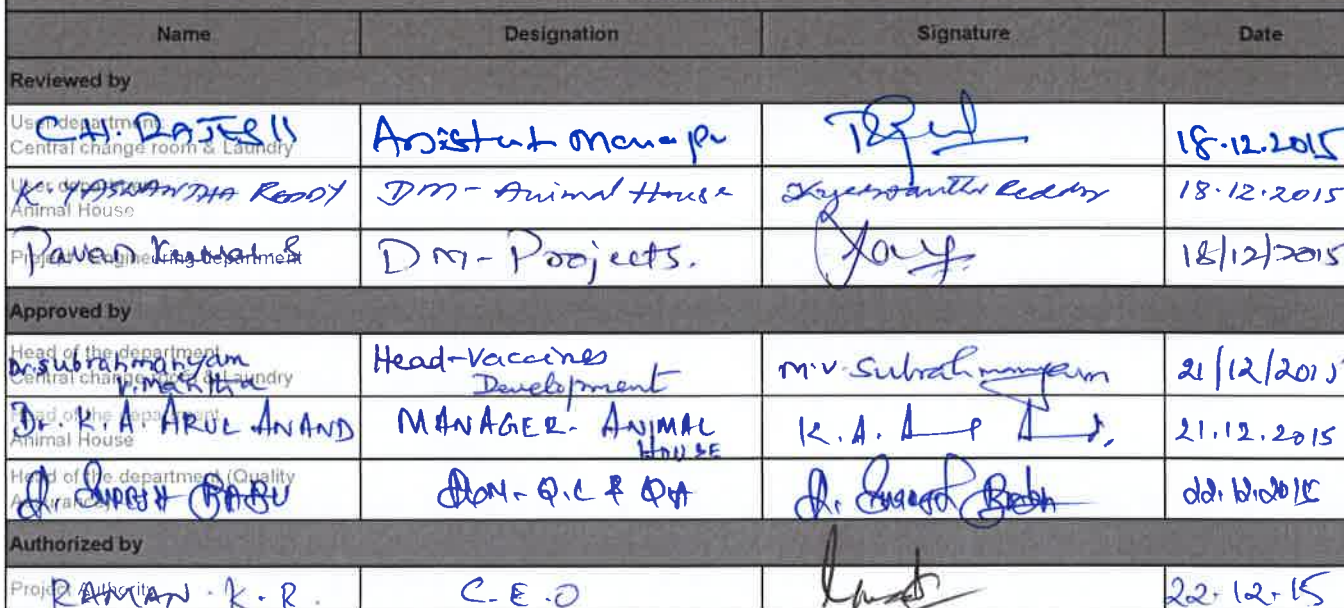 Name Designation Signature Date
Reviewed by
User department
Central change room & Laundry
C.H. RAJESH Assistant Manager 18.12.2015
User department
Animal House
K. YASWANTHA REDDY DM - Animal House Kyeswantha Reddy 18.12.2015
Project / Engineering department
Pavan Kumar S DM - Projects. 18/12/2015
Approved by
Head of the department
Central change room & Laundry
Dr. Subrahmanyam Head-Vaccines M.V. Subrahmanyam 21/12/2015
Development
Head of the department
Animal House
Dr. K. A. ARUL ANAND MANAGER - ANIMAL K. A. 21.12.2015
HOUSE
Head of the department (Quality
Assurance)
SURESH BABU Q.C & QA Babu
Authorized by
Project Authority
RAMAN . K . R . C.E.O 22.12.15